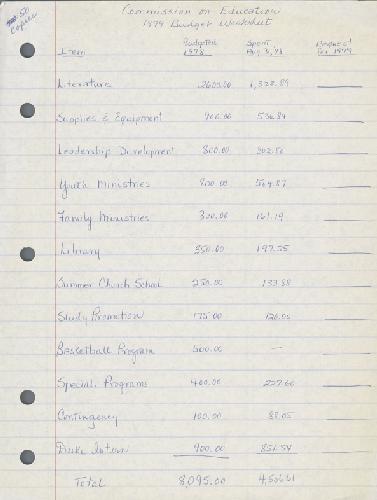 Copies
Commission on Education
1979 Budget Worksheet
Item Budgeted 1978 Spent Aug 8, 78 Request for 1979
Literature 2600.00 1,328.89
Supplies & Equipment 900.00 536.84
Leadership Development 800.00
Youth Ministries 569.87
Family Ministries 300.00 161.19
Library 350.00 197.55
Summer Church School 250.00 133.88
Study Promotion 175.00
Basketball Program 500.00 —
Special Programs 400.00 227.60
Contingency 100.00 88.05
Duke Intern 900.00 851.54
Total 8,095.00